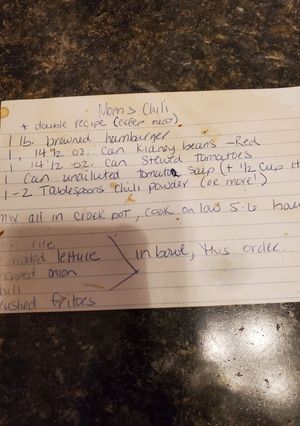 Mom's Chili
+ double recipe (except meat)
1 lb. browned hamburger
1, 14 1/2 oz. can Kidney beans - Red
1 14 1/2 oz. can Stewed Tomatoes
1 Can undiluted tomato soup (+ 1/2 cup
1-2 Tablespoons chili powder (or more!)
mix all in crock pot, cook on low 5-6
lettuce in bowl, this order.
onion
fritos